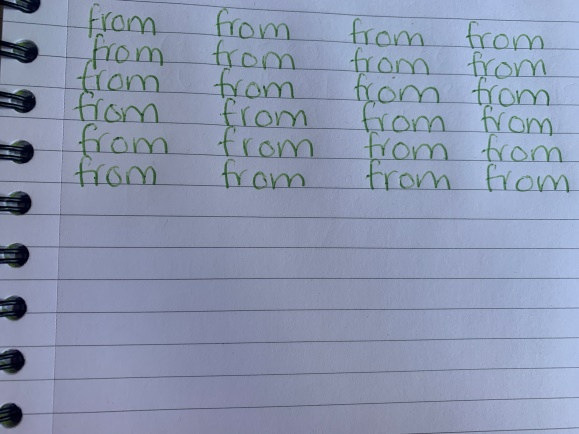 from from from from
from from from from
from from from from
from from from from
from from from from
from from from from